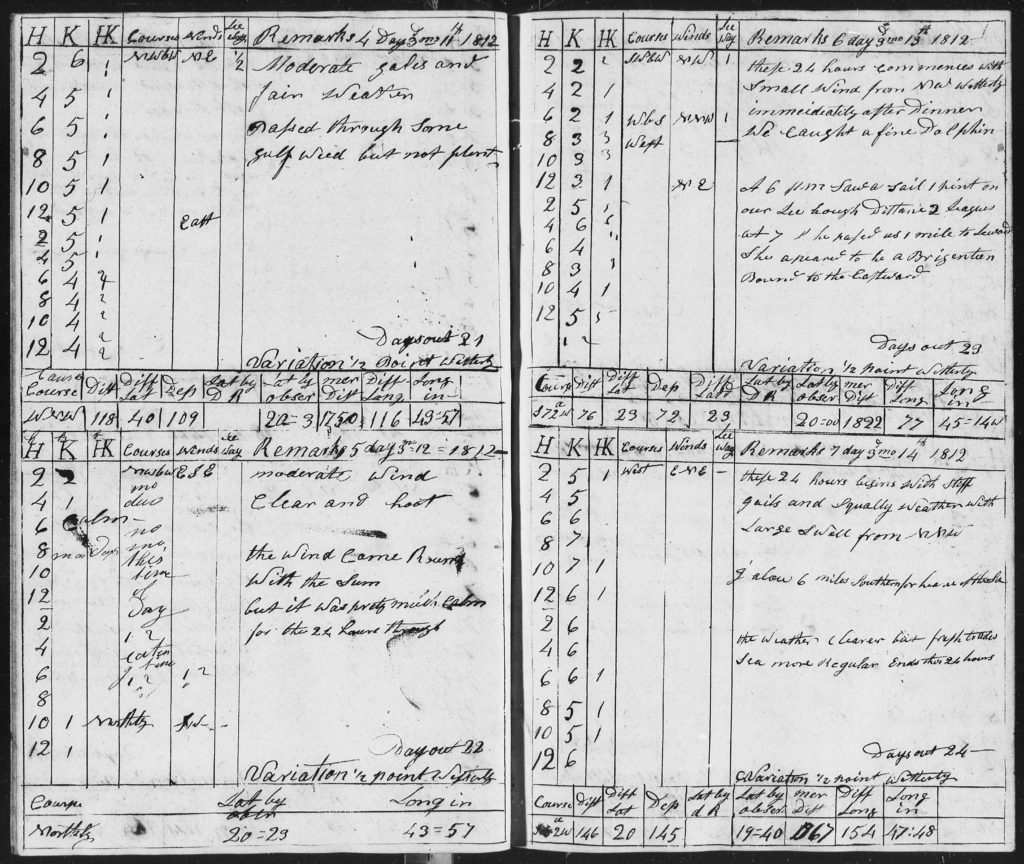 H K HK Courses Winds Lee Way Remarks 4 Day 3 mo 11th 1812
2 6 1 NWbW NE 1/2 Moderate gales and
4 5 1 fair Weather
6 5 1 Passed through Some
8 5 1 gulf weed but not plent
10 5 1
12 5 1 East
2 5 1
4 5 1
6 4 2
8 4 2
10 4 2
12 4 2
Days out 21
Variation 1/2 Point Westerly
Course Dist Diff Lat Dep Lat by DR Lat by obser mer Dist Diff Long Long in
WNW 118 40 109 22=3 1750 116 43=57
H K HK Courses Winds Lee Way Remarks 5 day 3 mo 12 = 1812
2 2 NWbW ESE moderate Wind
4 1 Clear and hoot
6 Calm no
8 no the Wind Came Round
10 this time With the Sun
12 Day but it was prety much Calm
2 for the 24 hours through
4
6
8
10 1 Northly
12 1
Day out 22
Variation 1/2 point Westerly
Course Lat by obser Long in
Northly 20=23 43=57
H K HK Courses Winds Lee Way Remarks 6 day 3 mo 13th 1812
2 2 2 SWbW NW 1 these 24 hours commences With
4 2 1 Small Wind from NW Westerly
6 2 1 WbS NNW 1 immeidiatily after Dinner
8 3 3 West We Caught a fine Dolphin
10 3 3
12 3 1 NE At 6 Saw a Sail 1 pint on
2 5 1 our Lee bough Distane 2 leagues
4 6 at 7 he pased us 1 mile to Leward
6 4 She apeared to be a Brigention
8 3 1 Bound to the Eastward
10 4 1
12 5
Days out 23
Variation 1/2 point Westerly
Course Dist Diff Lat Dep Diff Lat Lat by DR Lat by obser mer Dist Diff Long Long in
S72W 76 23 72 23 20=00 1822 77 45=14W
H K HK Courses Winds Lee Way Remarks 7 day 3 mo 14th 1812
2 5 1 West ENE – these 24 hours begins With Stiff
4 5 gails and Squally Weather With
6 6 Large Swell from NNW
8 7
10 7 1 alow 6 miles Southern for heave of the Sea
12 6 1
2 6
4 6 the Weather Clearer but fresh trades
6 6 1 Sea more Regular Ends this 24 hours
8 5 1
10 5 1
12 6
Days out 24
Variation 1/2 point Westerly
Course Dist Diff Lat Dep Lat by d R Lat by obser mer Dist Diff Long Long in
146 20 145 19=40 154 47:48